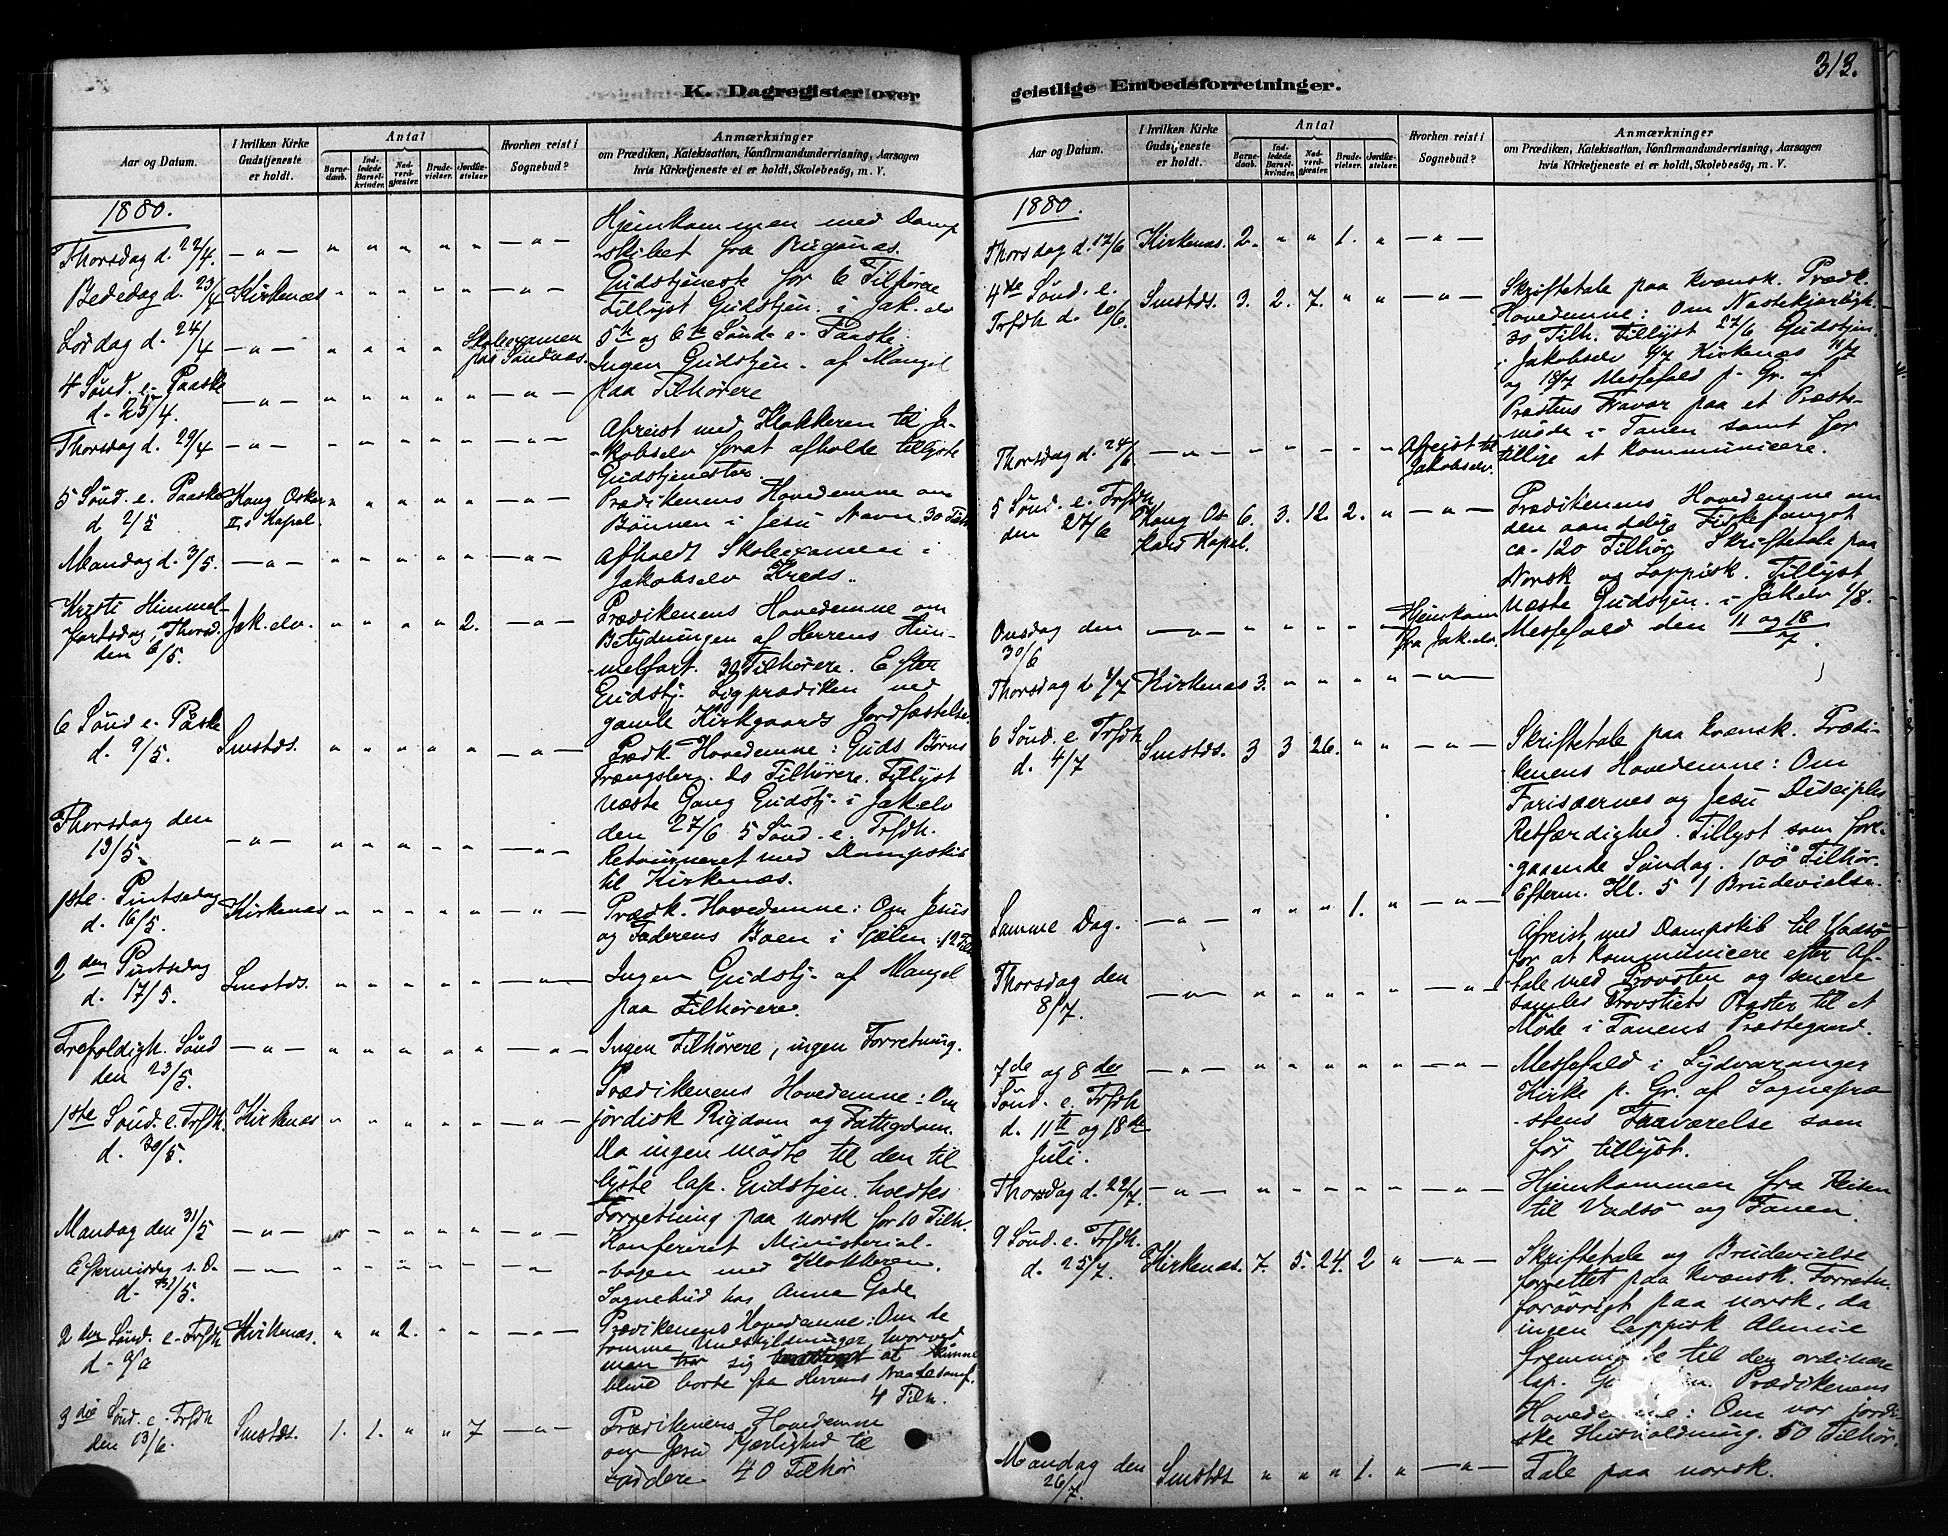 K. Dagregister over
Aar og Datum.
I hvilken Kirke Gudstjeneste er holdt.
Antal
Barnedaab.
Indledede Barselkvinder.
Nadverdgjæster.
Brudevielser.
Jordfæstelser
Hvorhen reist i Sognebud?
Anmærkninger
om Prædiken, Katekisation, Konfirmandundervisning, Aarsagen
hvis Kirketjeneste ei er holdt, Skolebesög, m. V.
1880.
Thorsdag d. 22/4. — " — " " " " " — " —
Hjemkommen med Damp
skibet fra Bugönæs.
Bededag d. 23/4 Kirkenæs " " " " " — " —
Gudstjeneste for 6 Tilhörere
Tillyst Gudstjen. i Jak.elv
Lördag d. 24/4 — " — " " " " Skoleexamen paa Sandnæs.
5te og 6te Sönd. e. Paaske.
4 Sönd. e. Paaske d. 25/4. — " — " " " " " — " —
Ingen Gudstjen. af Mangel
paa Tilhörere
Thorsdag d. 29/4 — " — " " " " " — " —
Afreist med Klokkeren til Ja-
kobselv forat afholde tillyste
Gudstjenester.
5 Sönd. e. Paaske d 2/5 Kong Oskar II.s Kapel. " " " " " — " —
Prædikenens Hovedemne om
Bönnen i Jesu Navn. 30 Tilh.
Mandag d. 3/5. — " — " " " " " — " —
Afholdt Skoleexamen i
Jakobselv Kreds.
Kristi Himmel-
fartsdag, Thorsd. den 6/5. Jak.elv. " " " " 2. — " —
Prædikenens Hovedemne om
Betydningen af Herrens Him-
melfart. 30 Tilhörere. Efter
Gudstj. Ligprædiken ved
gamle Kirkgaards Jordfæstelse.
6 Sönd e. Paaske d. 9/5. Smstds. " " " " " — " —
Prædk. Hovedemne: Guds Börns
Trængsler. 20 Tilhörere. Tillyst
næste Gang Gudstj. i Jakelv
den 27/6 5 Sönd. e. Trfdh.
Thorsdag den 13/5. — " — " " " " " — " —
Retourneret med Dampskib
til Kirkenæs.
1ste Pintsedag d. 16/5. Kirkenæs " " " " " — " —
Prædk. Hovedemne: Om Jesus
og Faderens Boen i Sjælen. 12 Tilh
2den Pintsedag d. 17/5. Smstds. " " " " " — " —
Ingen Gudstj. af Mangel
paa Tilhörere.
Trefoldigh. Sönd den 23/5. — " — " " " " " — " —
Ingen Tilhörere, ingen Forretning.
1ste Sönd. e. Trfdh. d. 30/5. Kirkenæs " " " " " — " —
Prædikenens Hovedemne: Om
jordisk Rigdom og Fattigdom.
Da ingen mödte til den til
lyste lap. Gudstjen. holdtes
Forretning paa norsk for 10 Tilh.
Mandag den 31/5 — " — " " " " " — " —
Konfereret Ministerial-
bogen med Klokkeren.
Eftermiddag s. D. d. 31/5. — " — " " " " " — " —
Sognebud hos Anna Gade
2den Sönd. e. Trfdh d. 6/6 Kirkenæs. " " 2. " " — " —
Prædikenens Hovedemne: Om de
tomme Undskyldninger hvorved
man tror sig at kunne
blive borte fra Herrens Naadesamf.
4 Tilh.
3die Sönd. e. Trfdh den 13/6. Smstds. 1. 1. " " 7 — " —
Prædikenens Hovedemne
om Jesu Kjærlighed til
Syndere 40 Tilhör
geistlige Embedsforretninger.
313.
Aar og Datum.
I hvilken Kirke Gudstjeneste er holdt.
Antal
Barnedaab.
Indledede Barselkvinder.
Nadverdgjæster.
Brudevielser.
Jordfæstelser
Hvorhen reist i Sognebud?
Anmærkninger
om Prædiken, Katekisation, Konfirmandundervisning, Aarsagen
hvis Kirketjeneste ei er holdt, Skolebesög, m. V.
1880.
Thorsdag d. 17/6 Kirkenæs. 2. " " 1. " — " —
4de Sönd. e. Trfdh d. 20/6. Smstds. 3. 2. 7. " " — " —
Skriftetale paa kvænsk. Prædk.
Hovedemne: Om Næstekjærligh.
30 Tilh. Tillyst 27/6 Gudstjen.
i Jakobselv 4/7 Kirkenæs 11/7
og 18/7 Messefald p. Gr. af
Præstens Fravær paa et Præste-
möde i Tanen samt for
tillige at kommunicere.
Thorsdag d. 24/6. — " — " " " " " Afreist til Jakobselv.
5 Sönd. e. Trfdh den 27/6 Kong Oskars Kapel. 6. 3. 12. 2. " — " —
Prædikenens Hovedemne om
den aandelige Fiskefangst
ca. 120 Tilhör. Skriftetale paa
Norsk og Lappisk. Tillyst
næste Gudstjen. i Jakelv 1/8.
Messefald den 11 og 18/7.
Onsdag den 30/6 — " — " " " " " Hjemkom fra Jak.elv.
Thorsdag d. 1/7 Kirkenæs 3. " " " " — " —
6 Sönd. e. Trfdh. d. 4/7 Smstds. 3 3 26. " " — " —
Skriftetale paa kvænsk. Prædi-
kenens Hovedemne: Om
Farisæernes og Jesu Disciples
Retfærdighed. Tillyst som fore-
gaaende Söndag. 100 Tilhör.
Samme Dag. — " — " " " 1. " — " —
Efterm. Kl. 5 1 Brudevielse.
Thorsdag den 8/7. — " — " " " " " — " —
Afreist med Dampskib til Vadsö
for at kommunicere efter Af-
tale med Provsten og senere
samles Provstiets Præster til et
Möde i Tanens Præstegaard.
7de og 8de Sönd. e. Trfdh d. 11te og 18de Juli. — " — " " " " " — " —
Messefald i Sydvaranger
Kirke p. Gr. af Sognepræ
stens Fraværelse som
för tillyst.
Thorsdag d. 22/7. — " — " " " " " — " —
Hjemkommen fra Reisen
til Vadsö og Tanen.
9 Sönd. e. Trfdh. d. 25/7. Kirkenæs. 7. 5. 24. 2 " — " —
Skriftetale og Brudevielse
forrettet paa kvænsk. Forretn.
forövrigt paa norsk, da
ingen lappisk Almue
til den ordinære
lap. Prædikenens
Hovedemne: Om vor jordi-
ske Husholdning. 50 Tilhör.
Mandag den 26/7. Smstds " " " 1. " — " —
Tale paa norsk.